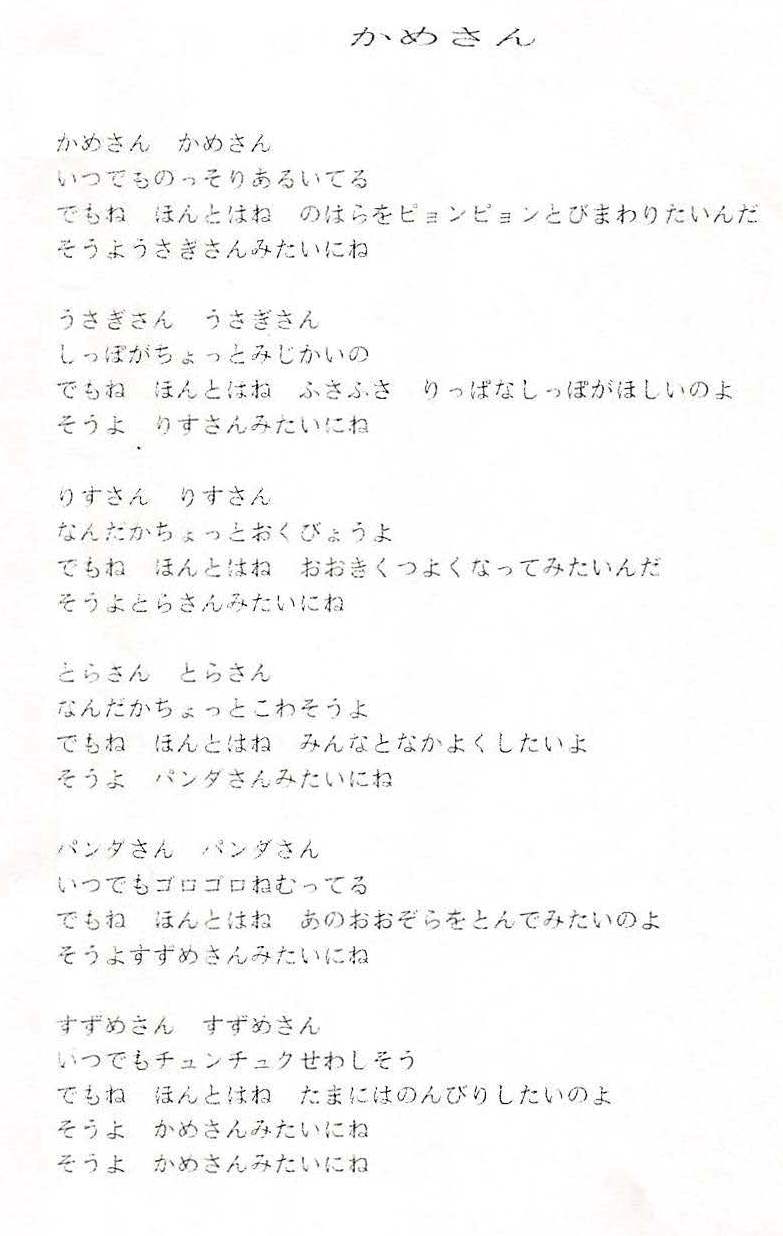 かめさん
かめさん　かめさん
いつでものっそりあるいてる
でもね　ほんとはね　のはらをピョンピョンとびまわりたいんだ
そうようさぎさんみたいにね
うさぎさん　うさぎさん
しっぽがちょっとみじかいの
でもね　ほんとはね　ふさふさ　りっぱなしっぽがほしいのよ
そうよ　りすさんみたいにね
りすさん　りすさん
なんだかちょっとおくびょうよ
でもね　ほんとはね　おおきくつよくなってみたいんだ
そうよとらさんみたいにね
とらさん　とらさん
なんだかちょっとこわそうよ
でもね　ほんとはね　みんなとなかよくしたいよ
そうよ　パンダさんみたいにね
パンダさん　パンダさん
いつでもゴロゴロねむってる
でもね　ほんとはね　あのおおぞらをとんでみたいのよ
そうよすずめさんみたいにね
すずめさん　すずめさん
いつでもチュンチュクせわしそう
でもね　ほんとはね　たまにはのんびりしたいのよ
そうよ　かめさんみたいにね
そうよ　かめさんみたいにね